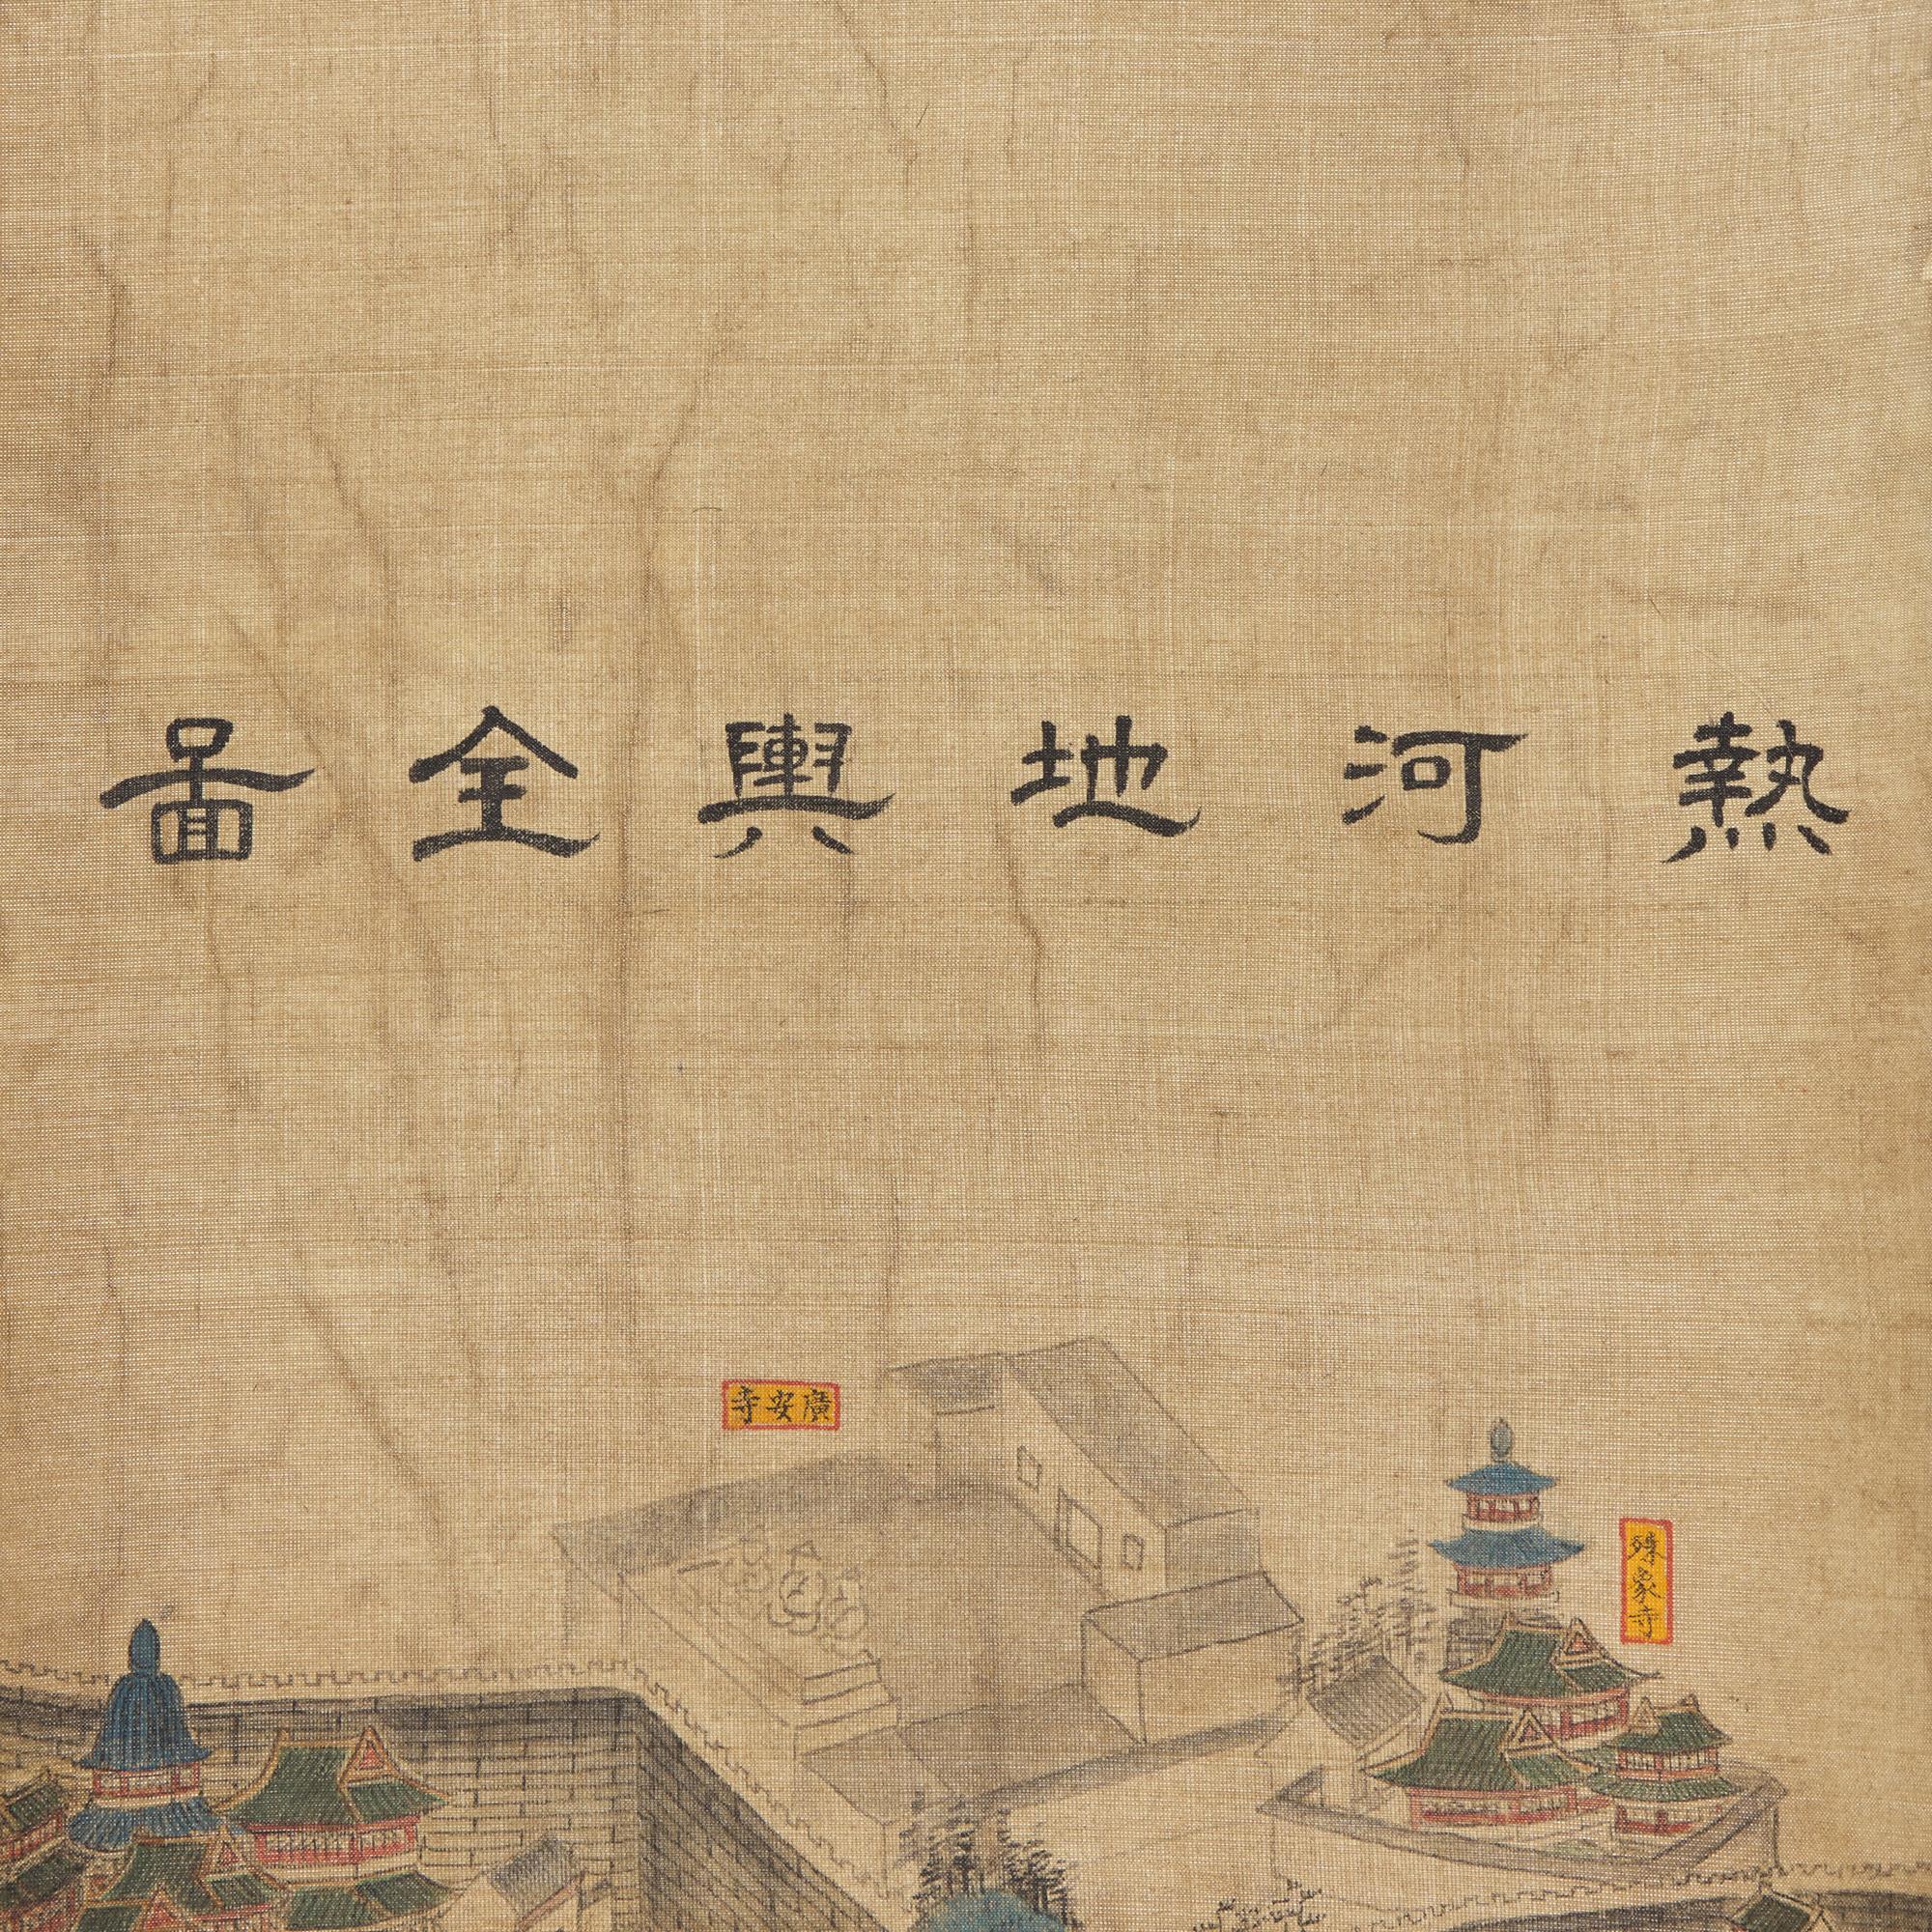 熱河地輿全啚
廣安寺
殊象寺